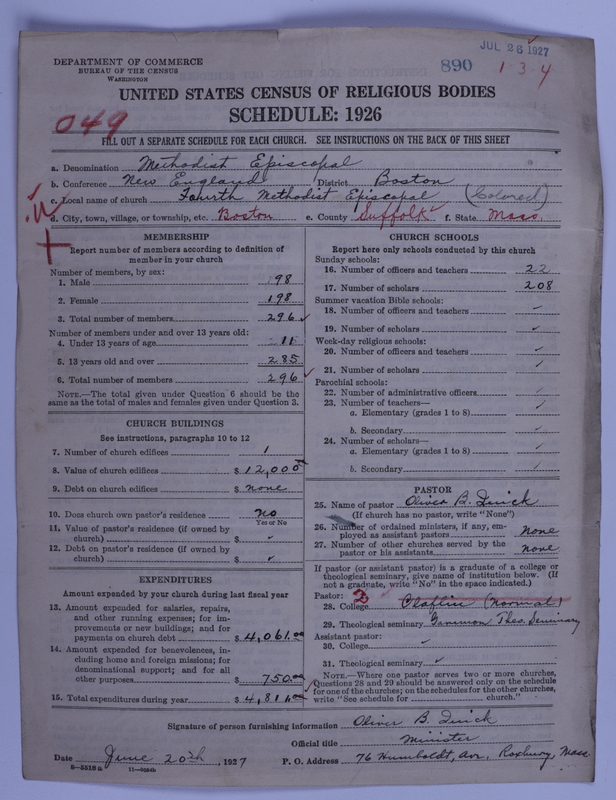 JUL 26 1927
DEPARTMENT OF COMMERCE
BUREAU OF THE CENSUS
WASHINGTON
890 1-3-4
UNITED STATES CENSUS OF RELIGIOUS BODIES
SCHEDULE: 1926
049
FILL OUT A SEPARATE SCHEDULE FOR EACH CHURCH. SEE INSTRUCTIONS ON THE BACK OF THIS SHEET
a. Denomination Methodist Episcopal
b. Conference New England District Boston
c. Local name of church Fourth Methodist Episcopal (Colored)
d. City, town, village, or township, etc. Boston e. County Suffolk f. State Mass.
MEMBERSHIP
Report number of members according to definition of
member in your church
Number of members, by sex:
1. Male 98
2. Female 198
3. Total number of members 296
Number of members under and over 13 years old:
4. Under 13 years of age 11
5. 13 years old and over 285
6. Total number of members 296
NOTE.—The total given under Question 6 should be
same as the total of males and females given under Question 3.
CHURCH BUILDINGS
See instructions, paragraphs 10 to 12
7. Number of church edifices 1
8. Value of church edifices $ 12,000
9. Debt on church edifices $ none
10. Does church own pastor's residence No
Yes or No
11. Value of pastor's residence (if owned by
church) $ ✓
12. Debt on pastor's residence (if owned by
church) $ ✓
EXPENDITURES
Amount expended by your church during last fiscal year
13. Amount expended for salaries, repairs,
and other running expenses; for im-
provements or new buildings; and for
payments on church debt $ 4,061.00
14. Amount expended for benevolences, in-
cluding home and foreign missions; for
denominational support; and for all
other purposes $ 750.00
15. Total expenditures during year $ 4,811.00
CHURCH SCHOOLS
Report here only schools conducted by this church
Sunday schools:
16. Number of officers and teachers 22
17. Number of scholars 208
Summer vacation Bible schools:
18. Number of officers and teachers ✓
19. Number of scholars ✓
Week-day religious schools:
20. Number of officers and teachers ✓
21. Number of scholars ✓
Parochial schools:
22. Number of administrative officers ✓
23. Number of teachers—
a. Elementary (grades 1 to 8) ✓
b. Secondary ✓
24. Number of scholars—
a. Elementary (grades 1 to 8) ✓
b. Secondary ✓
PASTOR
25. Name of pastor Oliver B. Quick
(If church has no pastor, write "None")
26. Number of ordained ministers, if any, em-
ployed as assistant pastors None
27. Number of other churches served by the
pastor or his assistants None
If pastor (or assistant pastor) is a graduate of a college or
theological seminary, give name of institution below. (If
not a graduate, write "No" in the space indicated.)
Pastor: 2
28. College Claflin (normal)
29. Theological seminary Gammon Theo. Seminary
Assistant pastor:
30. College ✓
31. Theological seminary ✓
NOTE.—Where one pastor serves two or more churches,
Questions 28 and 29 should be answered only on the schedule
for one of the churches; on the schedules for the other churches,
write "See schedule for church."
Signature of person furnishing information Oliver B. Quick
Official title Minister
Date June 20th, 1927 P. O. Address 76 Humboldt, Ave, Roxbury, Mass.